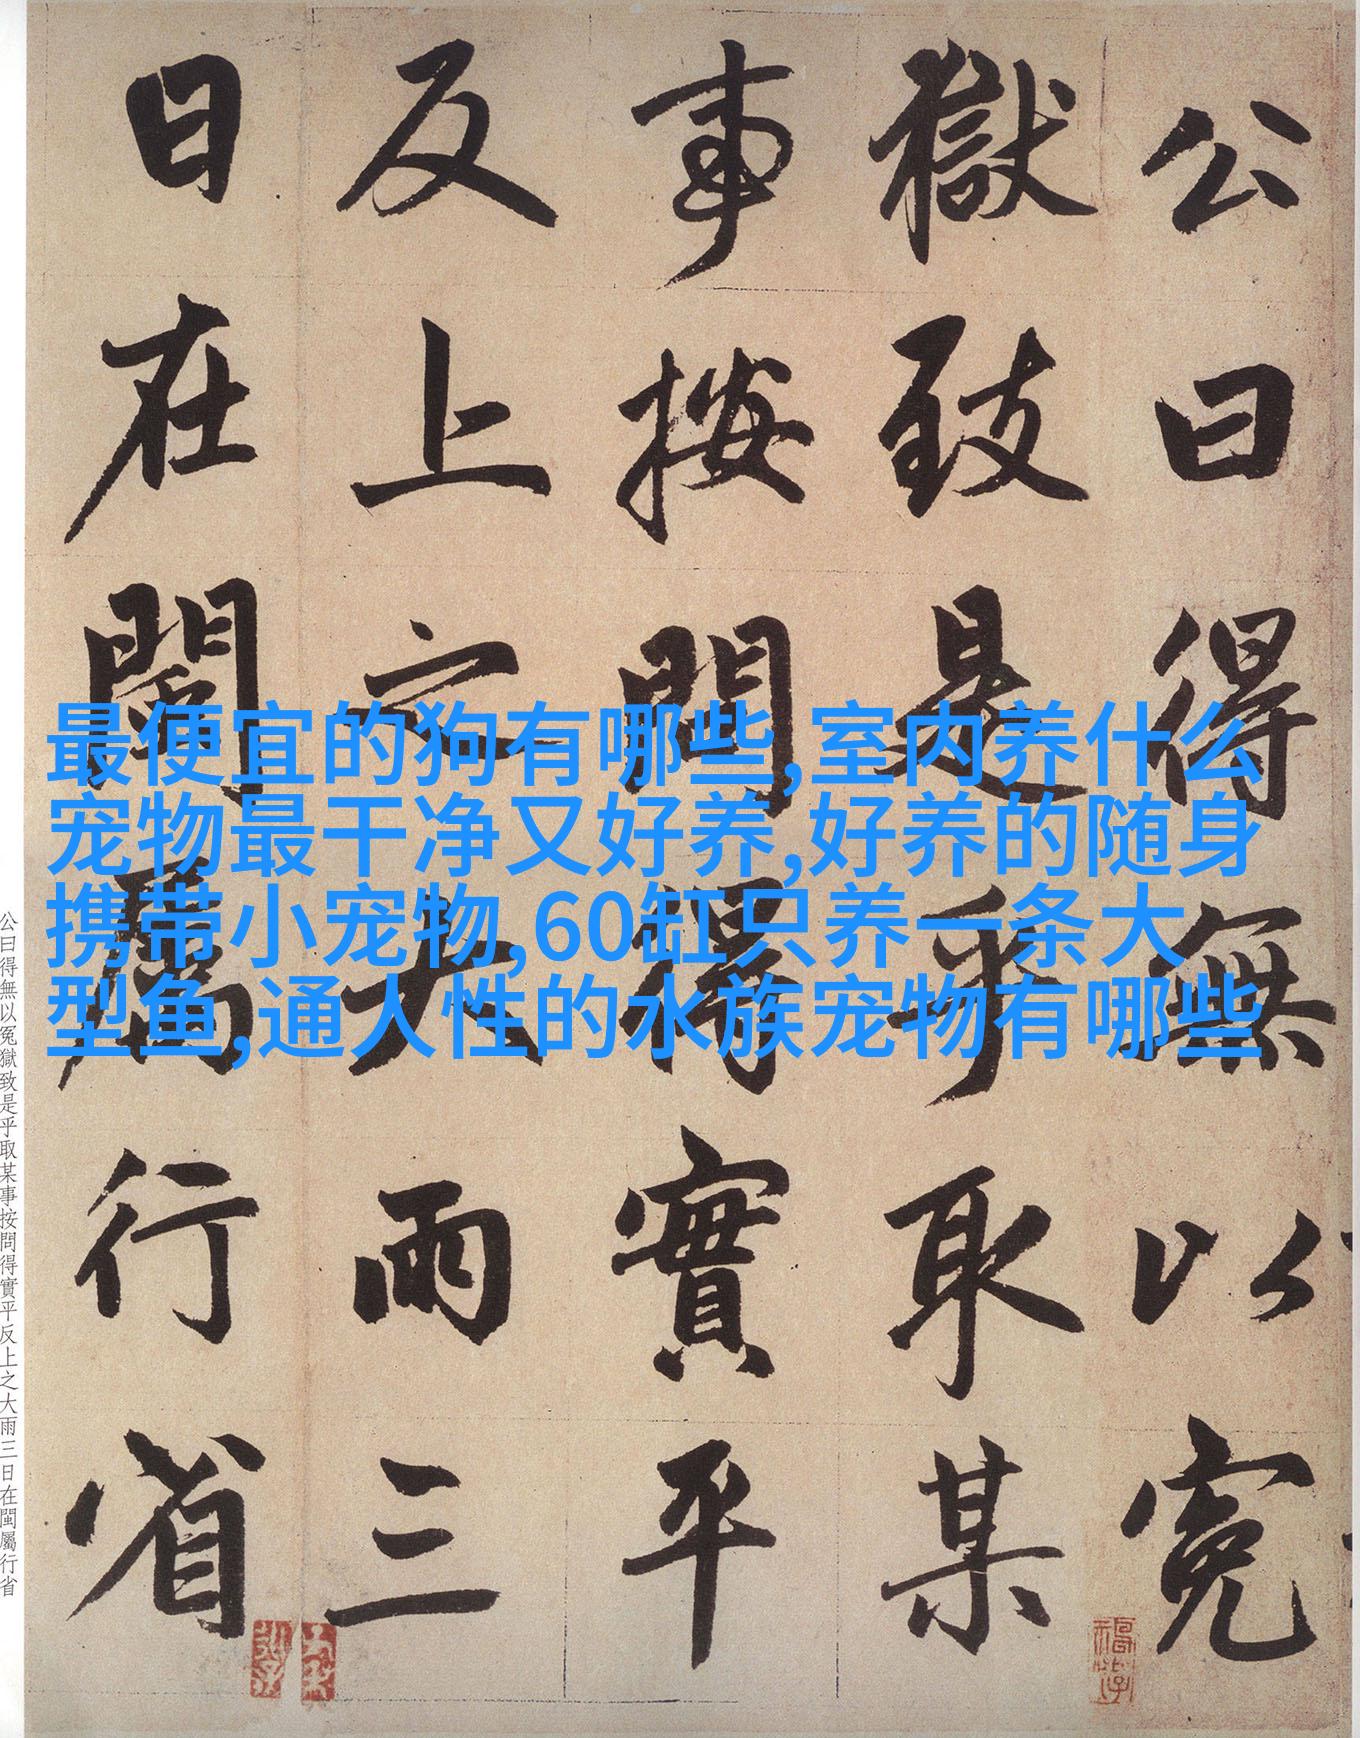 公曰得無以冤
獄致是乎取某
事按問得實平
反上之大雨三
日在閩屬行省
最便宜的狗有哪些,室内养什么
宠物最干净又好养,好养的随身
携带小宠物,60缸只养一条大
型鱼,通人性的水族宠物有哪些
公曰得無以冤獄致是乎取某事按問得實平反上之大雨三日在閩屬行省